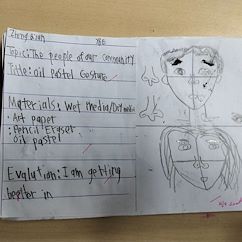 Y8E
Topic: The people of our community
Title: oil pastel Gesture
Materials: Wet media/Dry media
• Art paper
• Pencil Eraser
oil pastel
Evalution: I am getting
better in